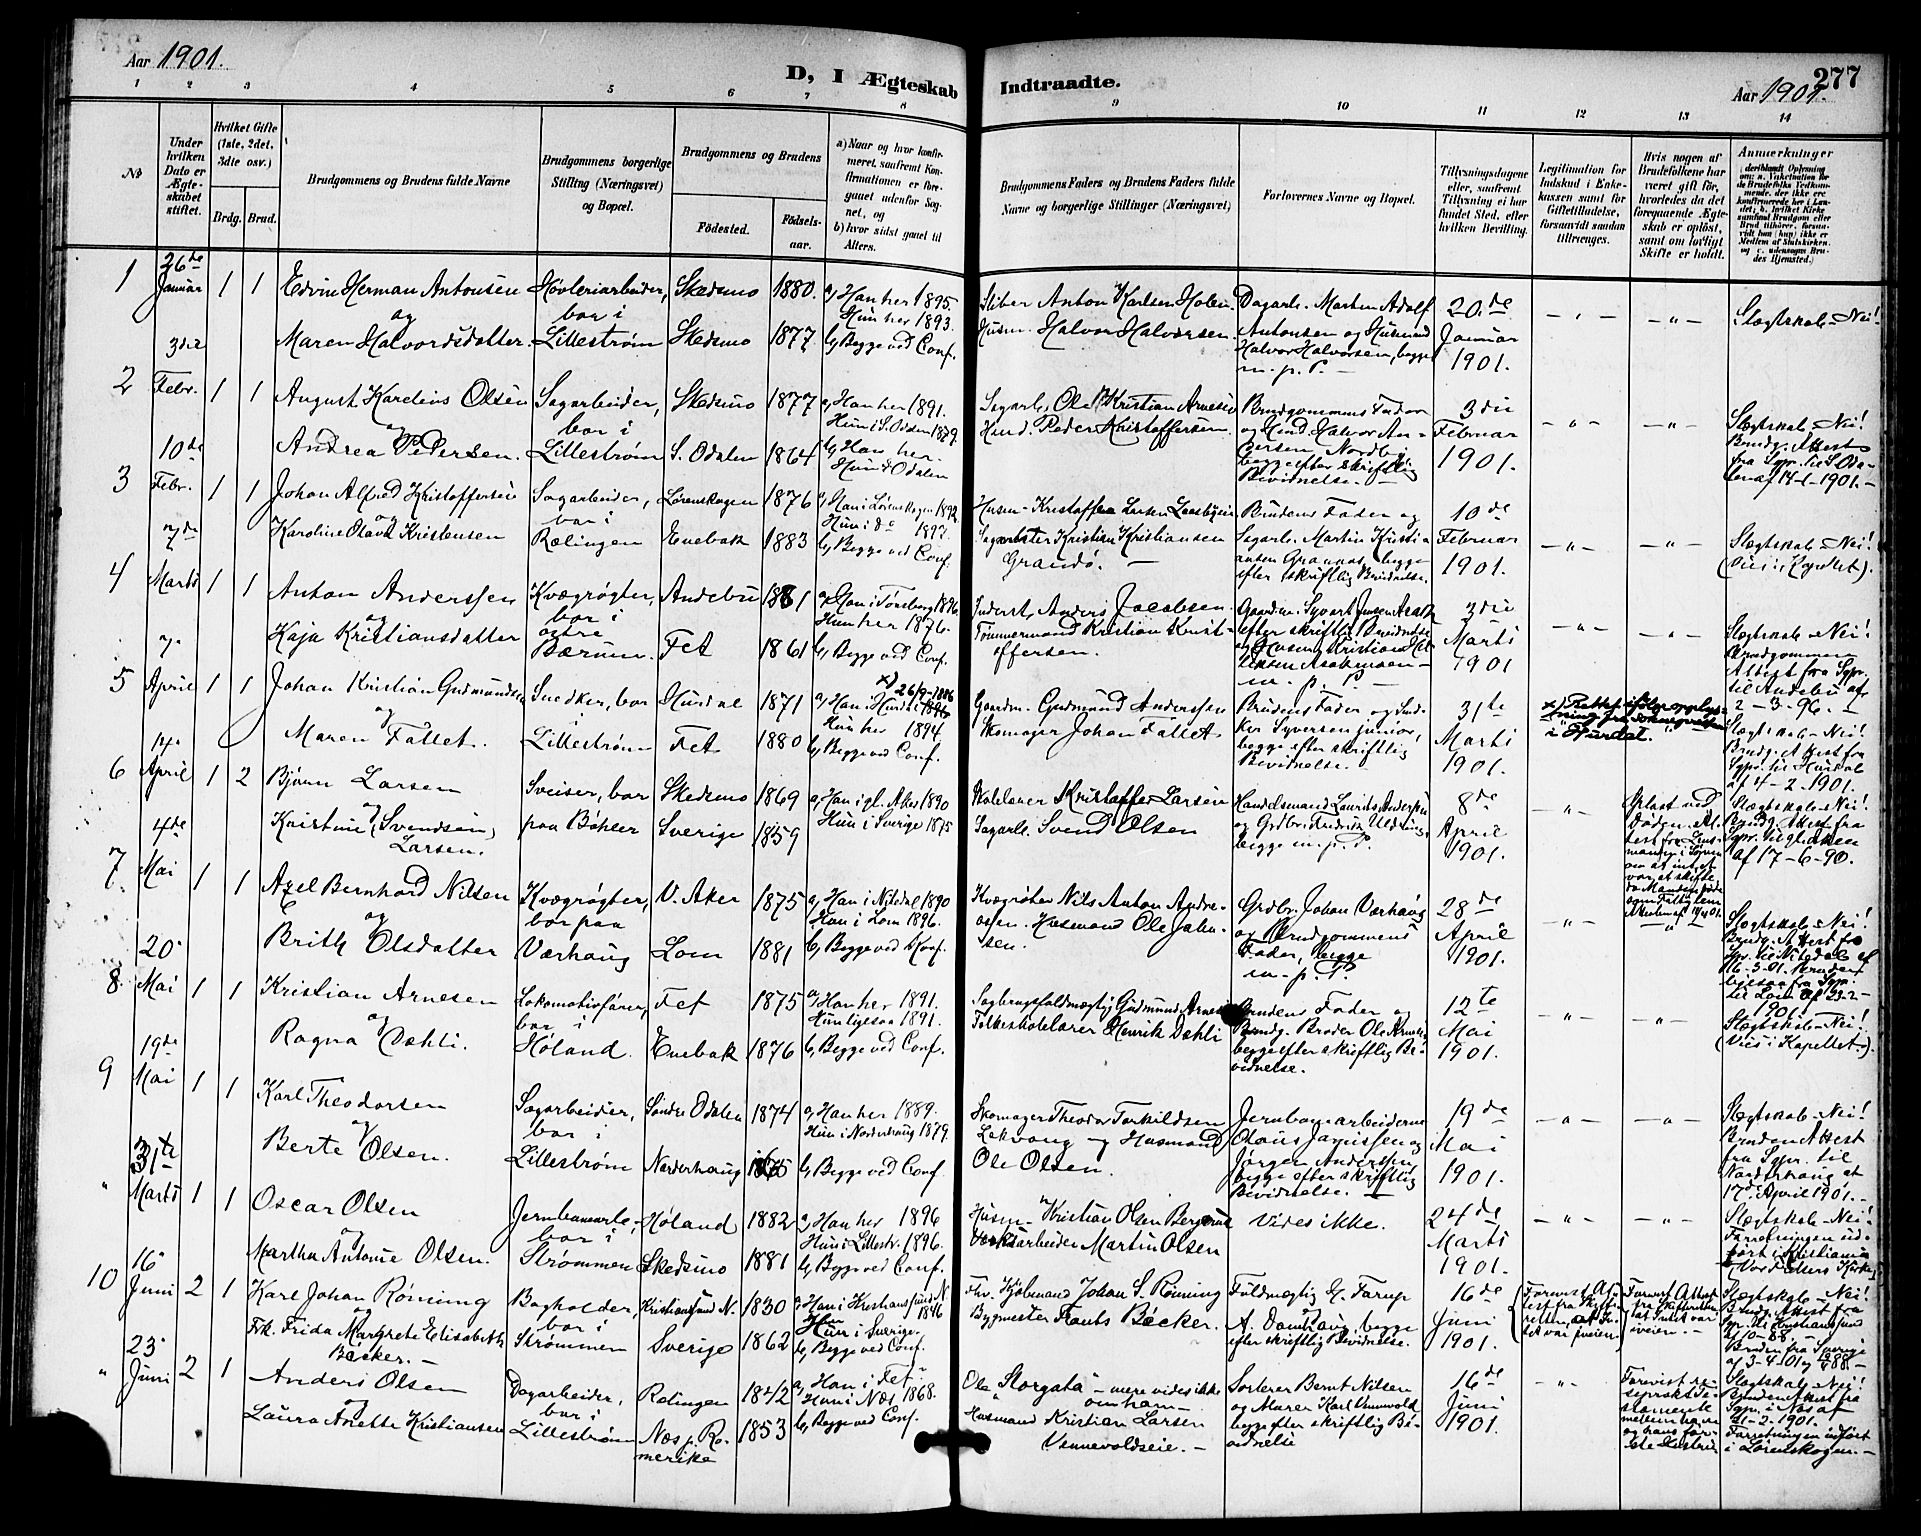 Aar 1901.
D, I Ægteskab Indtraadte.
277
Aar 1901.
1 2 3 4 5 6 7 8 9 10 11 12 13 14
No
Under hvilken Dato er Ægteskabet stiftet.
Hvilket Gifte (1ste, 2det, 3die osv.)
Brdg. Brud.
Brudgommens og Brudens fulde Navne
Brudgommens borgerlige Stilling (Næringsvei) og Bopæl.
Brudgommens og Brudens
Fødested.
Fødselsaar.
a) Naar og hvor konfirmeret, saafremt Konfirmationen er foregaaet udenfor Sognet, og
b) hvor sidst gaaet til Alters.
Brudgommens Faders og Brudens Faders fulde Navne og borgerlige Stillinger (Næringsvei)
Forlovernes Navne og Bopæl.
Tillysningsdagene eller, saafremt Tillysning ei har fundet Sted, efter hvilken Bevilling.
Legitimation for Indskud i Enkekassen samt for Giftetilladelse, forsaavidt saadan tiltrænges.
Hvis nogen af Brudefolkene har været gift før, hvorledes da det foregaaende Ægteskab er opløst, samt om lovligt Skifte er holdt.
Anmerkninger
1 26de Januar 1 1
Edvin Herman Antonsen
og
Maren Halvordsdatter.
Høvleriarbeider,
bor i
Lillestrøm
Skedsmo 1880.
Skedsmo 1877
a, Han her 1895.
Hun her 1893.
b, Begge ved Conf.
Anton Karlsen Holen
Husm. Halvor Halvorsen.
Dagarb. Martin Adolf
Antonsen og Husmand
Halvor Halvorsen, begge
m. p. P. –
20de
Januar
1901.
– " –
– " –
Slægtskab – Nei!
2 3die Febr. 1 1
August Karelius Olsen
og
Andrea Pedersen.
Sagarbeider,
bor i
Lillestrøm
Skedsmo 1877
S. Odalen 1864
a, Han her 1891.
Hun i S. Odalen 1879.
b, Han her.
Hun i Odalen
Sagarb. Ole Kristian Arnesen
Husd. Peder Kristoffersen.
Brudgommens Fader
og Husd. Halvor An-
dersen, Nordby
begge efter skriftlig
Bevidnelse. –
3die
Februar
1901.
– " –
– " –
Slægtskab – Nei!
Brudg. Attest
fra Spr. til S. Oda-
len af 14-1-1901. –
3 10de Febr. 1 1
Johan Alfred Kristoffersen
og
Karoline Olava Kristensen
Sagarbeider,
bor i
Rælingen
Lørenskogen 1876
Enebak 1883
a, Han i Lørenskogen 1892.
Hun i do 1897.
b, Begge ved Conf.
Husm. Kristoffer Larsen
Sagmester Kristian Kristiansen
Grandø. –
Brudens Fader og
Sagarb. Martin Kristi-
ansen begge
efter skriftlig Bevidnelse.
10de
Februar
1901.
– " –
– " –
Slægtskab – Nei!
(Viet i Kapellet).
4 7de Marts 1 1
Anton Anderssen
og
Kaja Kristiansdatter
Kvægrøgter,
bor i
østre
Bærum.
Andebu 1881
Fet 1861
a, Han i Tønsberg 1896.
Hun her 1876.
b, Begge ved Conf.
Inderst, Anders Jacobsen.
Tømmermand Kristian Krist-
offersen.
Gaardm. Syvert Jensen
efter skriftlig Bevidnelse
og Husm. Kristian
m. p. P. –
3die
Marts
1901
– " –
– " –
Slægtskab – Nei!
Brudgommens
Attest fra Spr.
til Andebu af
2-3-96. –
5 7. April 1 1
Johan Kristian Gudmundsen
og
Maren Fallet.
Snedker, bor
i
Lillestrøm
Hurdal 1871
Fet 1880
x) 26/9-1886
a, Han i Hurdal 1896
Hun her 1894.
b, Begge ved Conf.
Gaardm. Gudmund Anderssen
Skomager Johan Fallet
Brudens Fader og Sned-
ker Syversen junior,
begge efter skriftlig
Bevidnelse. –
31te
Marts
1901.
x) Rettet ifølge opplys-
ning fra soknepresten
i Hurdal.
Slægtskab – Nei!
Brudg. Attest fra
Spr. til Hurdal
af 4-2-1901.
6 14. April 1 2
Bjørn Larsen
og
Kristine (Svendsen)
Larsen.
Sveiser, bor
paa Bøhler
Skedsmo 1869
Sverige 1859
a, Han i gl. Aker 1890
Hun i Sverige 1875
Skolelærer Kristoffer Larsen
Sagarb. Svend Olsen
Handelsmand Laurits Andersen
og Grdbr. Fredrik
begge m. p. P.
8de
April
1901.
– " –
Opløst ved
Døden. At-
test fra Lens-
manden
om at intet
var at skifte
Slægtskab – Nei!
Brudg. Attest fra
Spr. til gl. Aker
af 17-6-90.
7 4de Mai 1 1
Axel Bernhard Nilsen
og
Brith Olsdatter
Kvægrøgter,
bor paa
Værhaug
V. Aker 1875
Lom 1881
a, Han i Nitedal 1890
Hun i Lom 1896.
b, Begge ved Konf.
Kvægrøter Nils Anton Andre-
asen. Husmand Ole Johan-
sen.
Grdbr. Johan Værhaug
og Brudgommens
Fader, begge
m. p. P.
28de
April
1901.
– " –
– " –
Slægtskab – Nei!
Brudg. Attest fra
Spr. til Nitedal af
16-3-01. Brudens
ligesaa fra Spr.
til Lom af 23-2-
1901.
8 20. Mai 1 1
Kristian Arnesen
og
Ragna Dæhli.
Lokomotivfører,
bor i
Høland.
Fet 1875
Enebak 1876
a, Han her 1891.
Hun ligesaa 1891.
b, Begge ved Conf.
Sagbrugsfuldmægtig Gudmund Arnesen
Folkeskolelærer Henrik Dæhli
Brudens Fader og
Brudg. Broder Ole Arnesen
begge efter skriftlig Be-
vidnelse.
12te
Mai
1901.
– " –
– " –
Slægtskab – Nei!
(Viet i Kapellet.).
9 19de Mai 1 1
Karl Theodorsen
og
Berte Olsen.
Sagarbeider,
bor i
Lillestrøm
Søndre Odalen 1874
Norderhaug 1865
a, Han her 1889.
Hun i Norderhaug 1879.
b, Begge ved Conf.
Skomager Theodor Torkildsen
Lekvang og Husmand
Ole Olsen.
Jernbanearbeiderne
Olaus Jørgenssen og
Jørgen Anderssen,
begge efter skriftlig
Bevidnelse. –
19de
Mai
1901.
– " –
– " –
Slægtskab – Nei!
Bruden Attest
fra Spr. til
Norderhaug af
17de April 1901. –
" 31te Marts 1 1
Oscar Olsen
og
Martha Antonie Olsen.
Jernbanearb.,
bor i
Strømmen
Høland 1882
Skedsmo 1881
a, Han her 1896
Hun i Lillestr. 1896.
b, Begge ved Conf.
Husm. Kristian Olsen Bergerud
Verksarbeider Martin Olsen
Vides ikke.
24de
Marts
1901.
– " –
– " –
Slægtskab – Nei!
Forretningen ud-
ført i Kristiania
(Vor Frelsers Kirke)
10 16. Juni 2 1
Karl Johan Rönning
og
Frk. Frida Margrete Elisabeth
Bäcker. –
Bogholder,
bor i
Strømmen
Kristiansund N. 1830
Sverige 1862
a, Han i Kristiansund N.
1846
Hun i Sverige.
b, Begge ved Conf.
Fhv. Kjøbmand Johan S. Rönning
Bygmester Frants Bäcker.
Fuldmægtig G. Farup
A. Damhaug, begge
efter skriftlig Bevidnelse.
16de
Juni
1901.
Forevist At-
test fra Skifte-
retten, at In-
tet var iveien
Forevist Attest
fra Skifteretten
at Intet var
iveien. –
Slægtskab – Nei!
Brudg. Attest fra
Spr. til Kristiansund
af 10-88. –
Bruden fra Sverige
af 3-4-01
" 23. Juni 2 1
Anders Olsen
Laura Anette Kristiansen
Dagarbeider,
bor i
Lillestrøm
Rælingen 1842
Næs p. Ro-
merike 1853
a, Han i Fet
Hun i Næs 1868.
b, Begge ved Conf.
Ole "Storgata" – mere vides ikke
om ham –
Husmand Kristian Larsen
Vennevoldseie. –
Sorterer Bernt Nilsen
og Murer Karl Vennevold
begge efter skriftlig Be-
vidnelse
16de
Juni
1901.
– " –
Forevist re-
ciprokt Te-
stamente
mellem ham
og hans før-
ste Hustru
Slægtskab – Nei!
Bruden Attest fra
Spr. i Næs af
21-2-1901.
Forretningen udført
i Lørenskogen. –